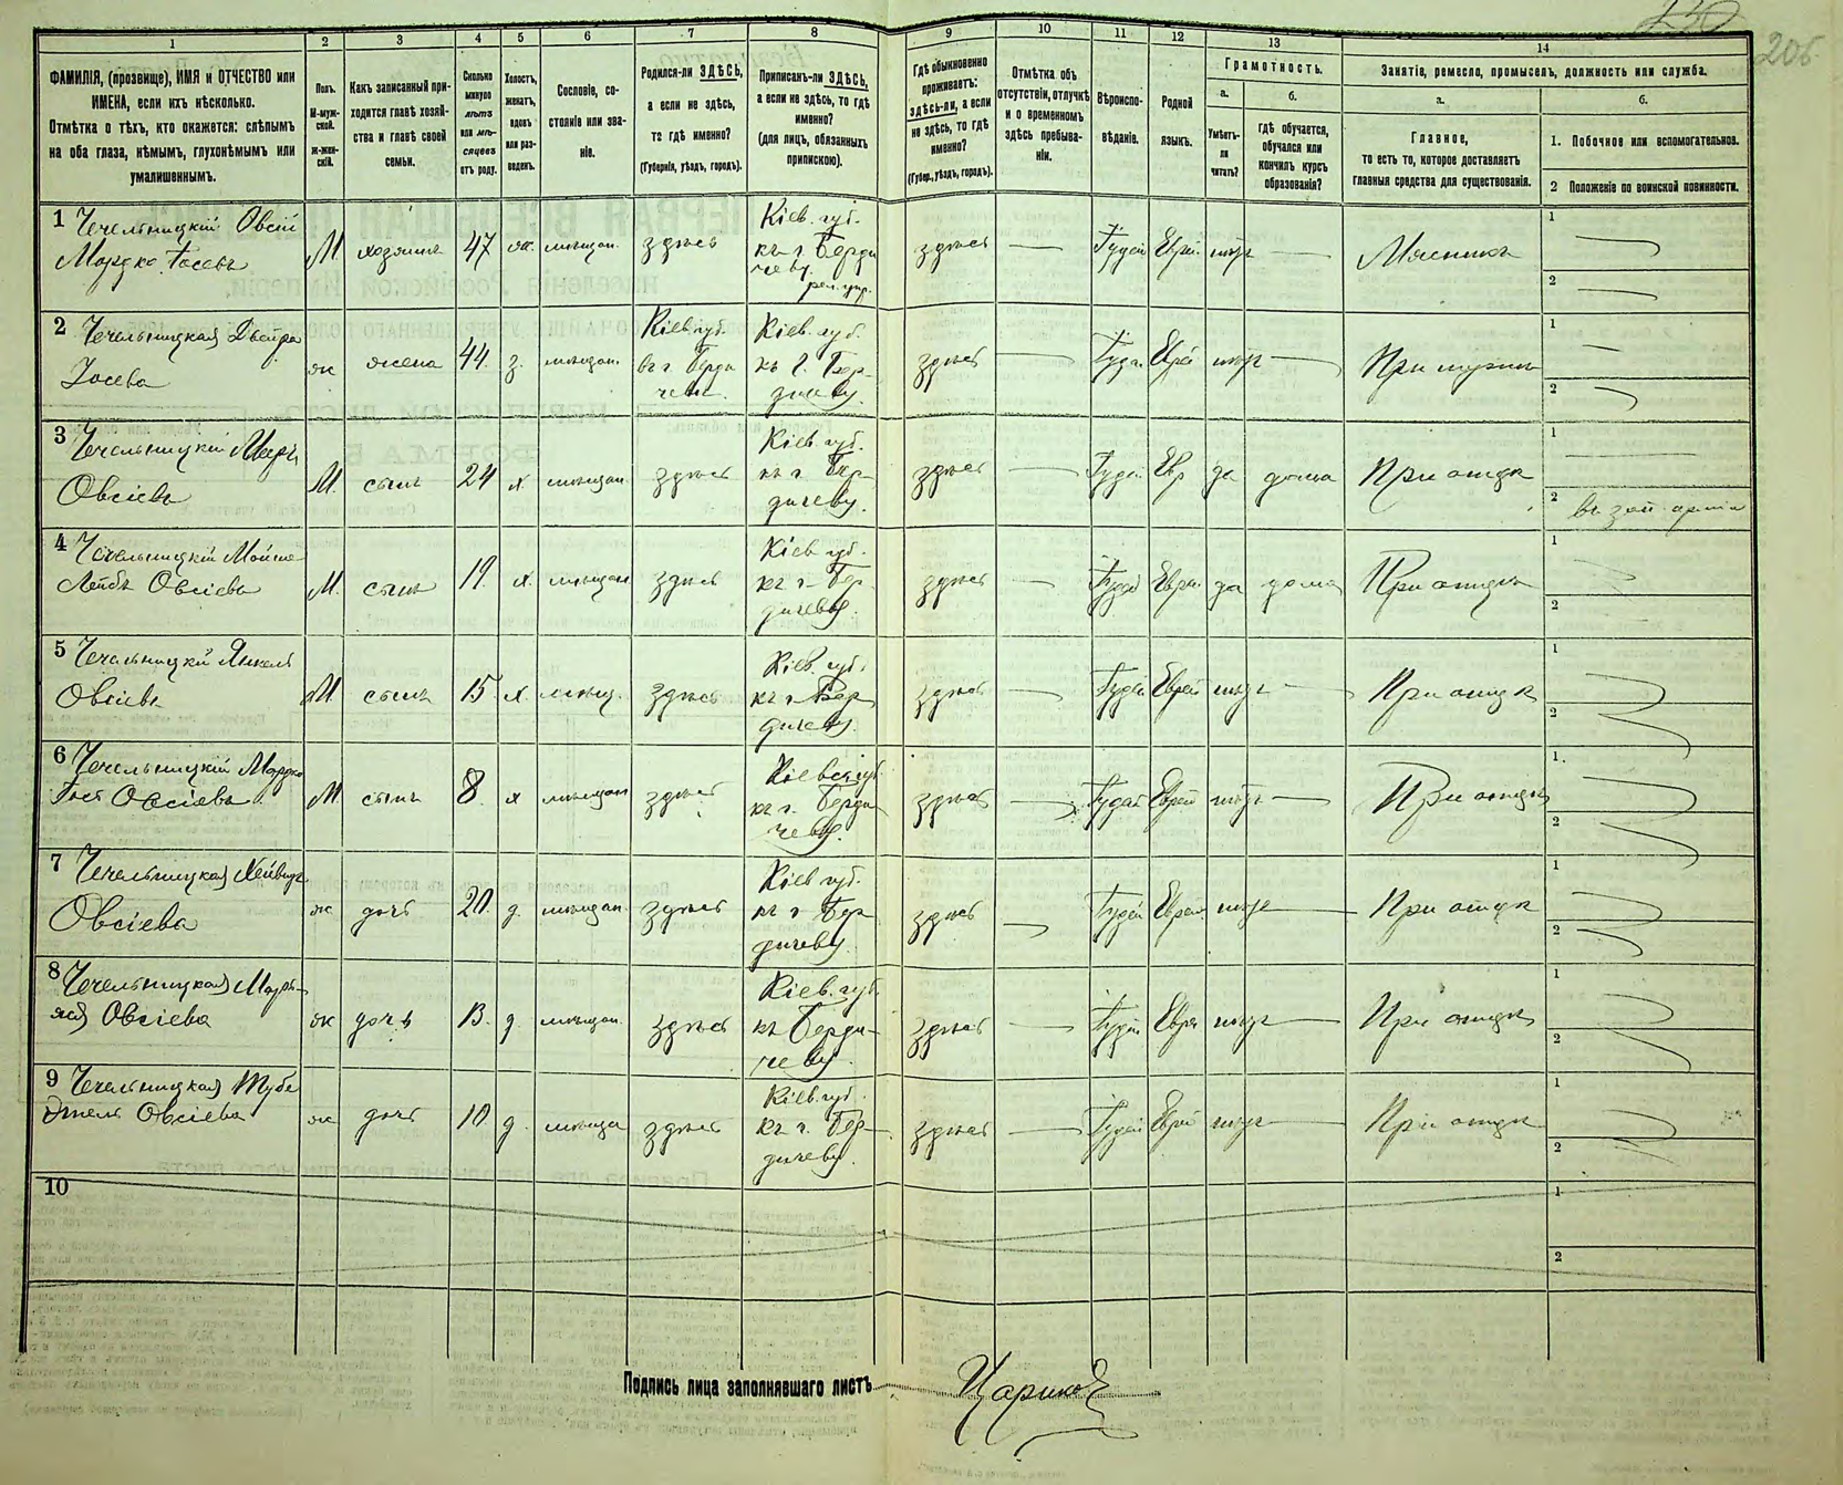 230
206
1 2 3 4 5 6 7 8 9 10 11 12 13 14
ФАМИЛІЯ, (прозвище), ИМЯ и ОТЧЕСТВО или
ИМЕНА, если ихъ нѣсколько.
Отмѣтка о тѣхъ, кто окажется: слѣпымъ
на оба глаза, нѣмымъ, глухонѣмымъ или
умалишеннымъ.
Полъ.
М-муж-
ской.
Ж-жен-
скій.
Какъ записанный при-
ходится главѣ хозяй-
ства и главѣ своей
семьи.
Сколько
минуло
лѣтъ
или мѣ-
сяцевъ
отъ роду.
Холостъ,
женатъ,
вдовъ
или раз-
веденъ.
Сословіе, со-
стояніе или зва-
ніе.
Родился-ли ЗДѢСЬ,
а если не здѣсь,
то гдѣ именно?
(Губернія, уѣздъ, городъ).
Приписанъ-ли ЗДѢСЬ,
а если не здѣсь, то гдѣ
именно?
(для лицъ, обязанныхъ
припискою).
Гдѣ обыкновенно
проживаетъ:
здѣсь-ли, а если
не здѣсь, то гдѣ
именно?
(Губер., уѣздъ, городъ).
Отмѣтка объ
отсутствіи, отлучкѣ
и о временномъ
здѣсь пребыва-
ніи.
Вѣроиспо-
вѣданіе.
Родной
языкъ.
Грамотность.
а.
Умѣетъ-
ли
читать?
б.
Гдѣ обучается,
обучался или
кончилъ курсъ
образованія?
Занятіе, ремесло, промыселъ, должность или служба.
а.
Главное,
то есть то, которое доставляетъ
главныя средства для существованія.
б.
1. Побочное или вспомогательное.
2 Положеніе по воинской повинности.
1 Чечельницкій Овсій
Мордко Іосевъ
М. хозяинъ 47 ж. мѣщан. здѣсь
Кіев. губ.
къ г. Берди
чеву.
здѣсь Іудей Еврей. Мясникъ
1
2
2 Чечельницкая Двойра
Іосева
ж жена 44. з. мѣщан.
Кіев. губ.
въ г. Берди
чевѣ.
Кіев. губ.
къ г. Бер-
дичеву.
здѣсь Іуде. Еврей При мужѣ
1
2
3 Чечельницкій
Овсіевъ
М. сынъ 24 х мѣщан здѣсь
Кіев. губ.
къ г. Бер-
дичеву.
здѣсь Іудей Евр да дома При отцѣ
1
2
4 Чечельницкій Мойше
Лейбъ Овсіевъ
М. сынъ 19. х. мѣщан здѣсь
Кіев губ.
къ г. Бер
дичеву.
здѣсь Іудей Еврей. да дома При отцѣ
1
2
5 Чечельницкій Янкель
Овсіевъ
М. сынъ 15. х. мѣщ. здѣсь
Кіев. губ.
къ г. Бер
дичеву.
здѣсь Іудей Еврей При отцѣ
1
2
6 Чечельницкій Мордко
Овсіевъ
М. сынъ 8. х мѣщан здѣсь
Кіевск губ
къ г. Берди
чеву.
здѣсь Іудей Еврей При отцѣ
1.
2
7 Чечельницкая
Овсіева
ж дочь 20. д. мѣщан. здѣсь
Кіев губ.
къ г. Бер
дичеву.
здѣсь Іудей Еврей. При отцѣ
1
2
8 Чечельницкая Марь-
яся Овсіева
ж дочь 13. д. мѣщан. здѣсь
Кіев. губ.
къ Берди-
чеву.
здѣсь Іудей Еврей При отцѣ
1
2
9 Чечельницкая Тубе
Этель Овсіева
ж дочь 10 д. мѣщан здѣсь
Кіев. губ.
къ г. Бер-
дичеву.
здѣсь Іудей Еврей При отцѣ
1
2
10
1
2
Подпись лица заполнявшаго листъ